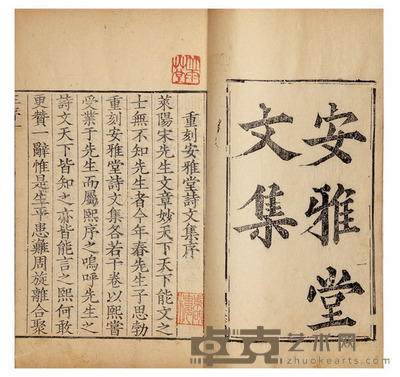 安雅堂
文集
重刻安雅堂詩文集序
萊陽宋先生文章妙天下天下能文之
士無不知先生者今年春先生子思勃
重刻安雅堂詩文集各若干卷以熙嘗
受業于先生而屬熙序之嗚呼先生之
詩文天下皆知之亦皆能言之熙何敢
更贊一辭惟是生平患難周旋離合聚
卓克艺术网
zhuokearts.com